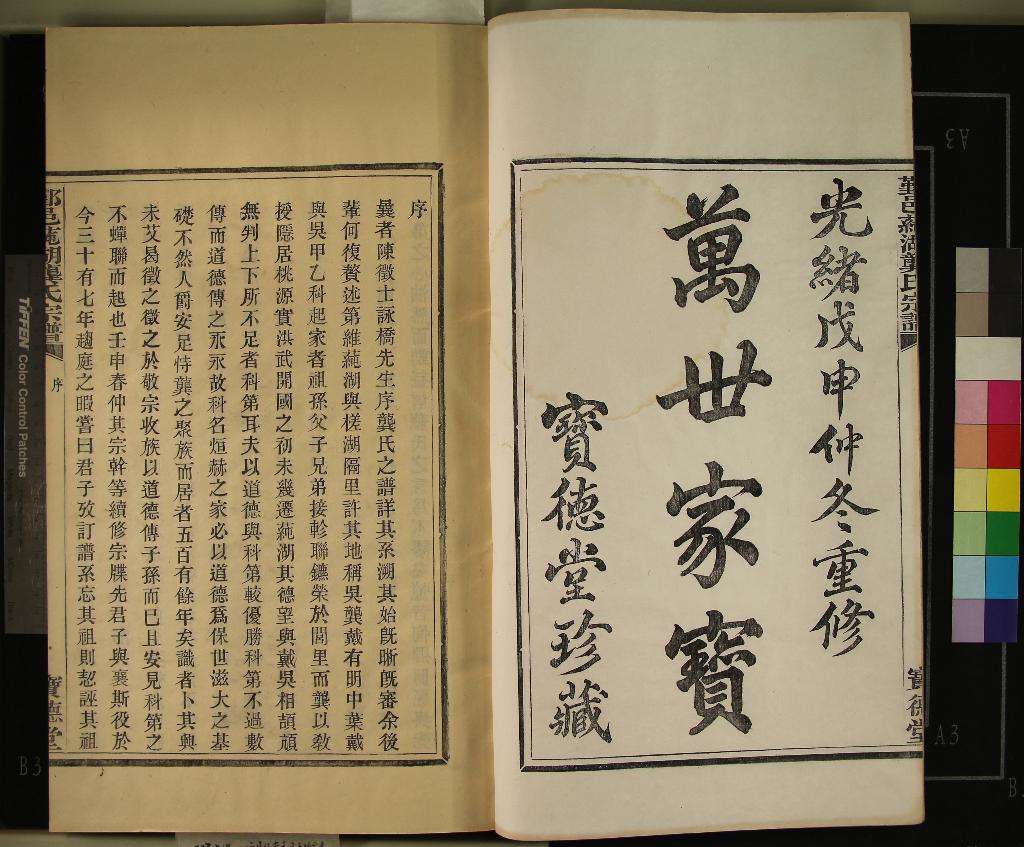 光緒戊申仲冬重修
萬世家寶
寶德堂珍藏
寶德堂
序
曩者陳徵士詠橋先生序龔氏之譜詳其系溯其始旣晰旣審余後
輩何復贅述第維蒓湖與槎湖隔里許其地稱吳龔戴有明中葉戴
與吳甲乙科起家者祖孫父子兄弟接軫聯鑣榮於閭里而龔以敎
授隱居桃源實洪武開國之初未幾遷蒓湖其德望與戴吳相頡頏
無判上下所不足者科第耳夫以道德與科第較優勝科第不過數
傳而道德傳之永永故科名烜赫之家必以道德爲保世滋大之基
礎不然人爵安足恃龔之聚族而居者五百有餘年矣識者卜其興
未艾曷徵之徵之於敬宗收族以道德傳子孫而已且安見科第之
不蟬聯而起也壬申春仲其宗幹等續修宗牒先君子與襄斯役於
今三十有七年趨庭之暇嘗曰君子攷訂譜系忘其祖則恝誣其祖
龔氏宗譜
序
寶德堂
TIFFEN Color Control Patches
A3
A3
B3